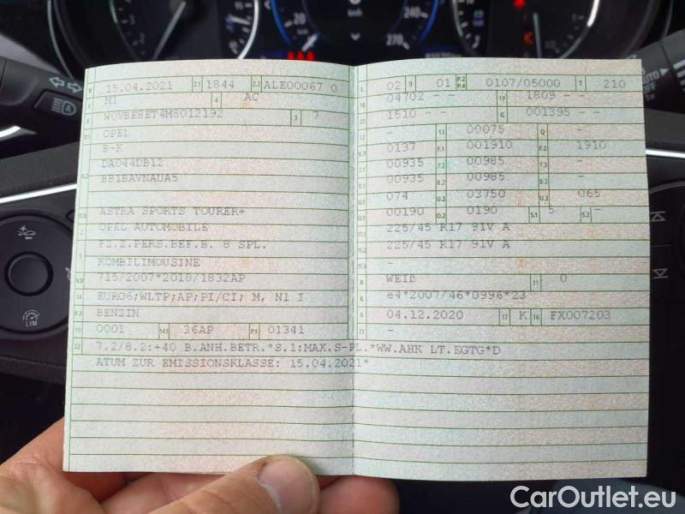 15.04.2021 1844 ALE00067 0
M1 AC
W0VBE8ET4M8012192 7
OPEL
B-K
DA044DB12
BB1BAVNAUA5
ASTRA SPORTS TOURER+
OPEL AUTOMOBILE
FZ.Z.PERS.BEF.B. 8 SPL.
KOMBILIMOUSINE
715/2007*2018/1832AP
EURO6;WLTP;AP;PI/CI; M, N1 I
BENZIN
0001 36AP 01341
7.2/8.2:+40 B.ANH.BETR.*S.1:MAX.S-PL.*WW.AHK LT.EGTG*D
ATUM ZUR EMISSIONSKLASSE: 15.04.2021*
02 01 0107/05000 210
04702 - - 1809 - -
1510 - - 001395 - -
- 00075 -
0137 001910 1910
00935 00985 -
00935 00985 -
074 03750 065
00190 0190 5 -
225/45 R17 91V A
225/45 R17 91V A
-
WEIß 0
e4*2007/46*0996*23
04.12.2020 K FX007203
-
CarOutlet.eu